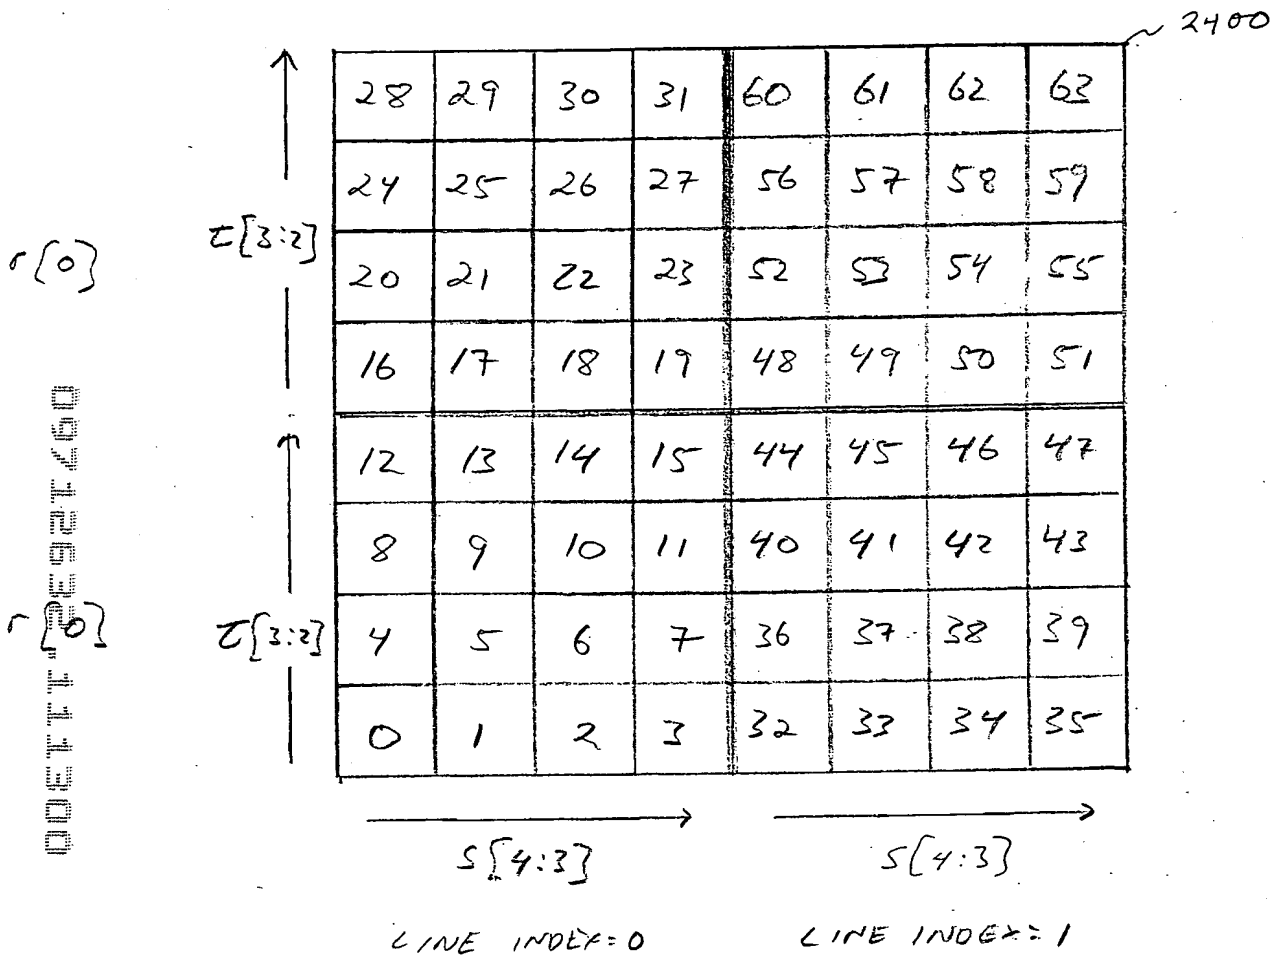 2400
28 29 30 31 60 61 62 63
24 25 26 27 56 57 58 59
r[0] t[3:2]
20 21 22 23 52 53 54 55
16 17 18 19 48 49 50 51
12 13 14 15 44 45 46 47
8 9 10 11 40 41 42 43
r[0] t[3:2]
4 5 6 7 36 37 38 39
0 1 2 3 32 33 34 35
S[4:3] S[4:3]
LINE INDEX=0 LINE INDEX=1
09712632.111300